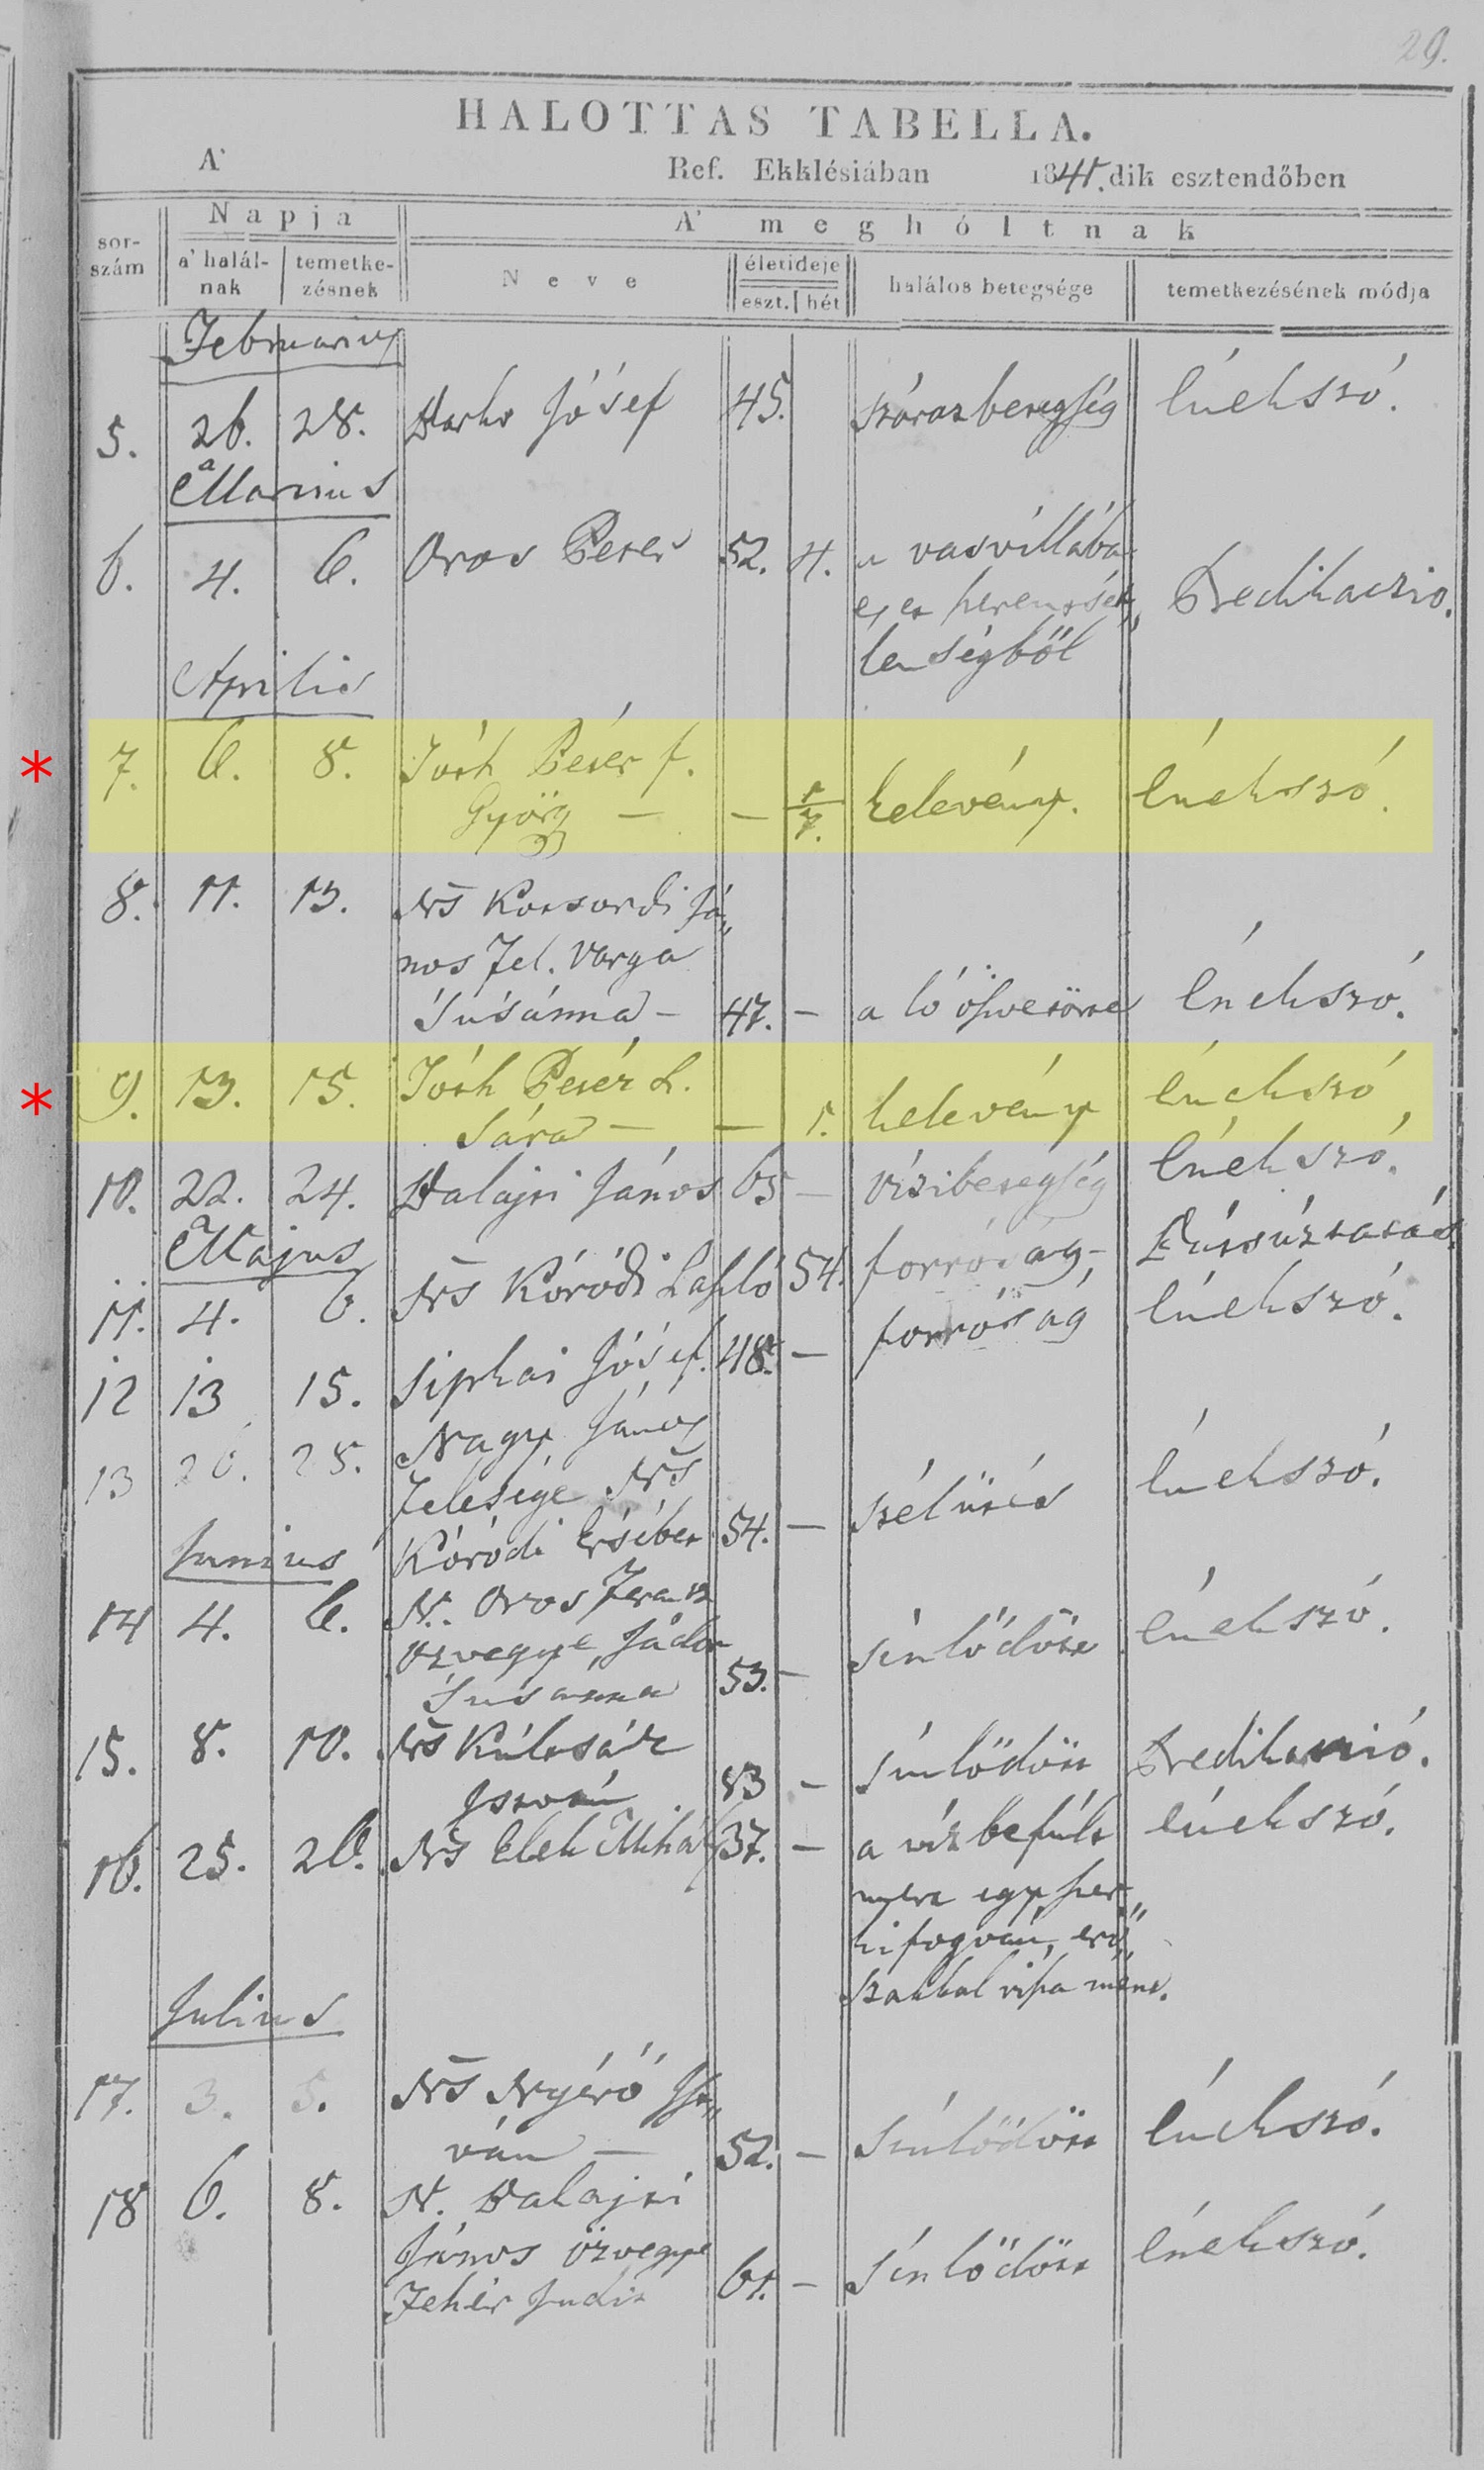 29.
HALOTTAS TABELLA.
A' Ref. Ekklésiában 1841.dik esztendőben
sor-szám
Napja
a' halál-nak
temetke-zésnek
A' meghóltnak
Neve
életideje
eszt. hét
halálos betegsége
temetkezésének módja
Februarius
5. 26. 28. Darko Jósef 45. száraz betegség énekszó.
Martius
6. 4. 6. Oros Peter 52. 4. a vasvillába
Predikaczio.
lenségből
Aprilis
* 7. 6. 8. Tóth Péter f.
György — — 1/7. kelevény. énekszó.
8. 11. 13. Ns Kocsordi Já„
nos Fel. Varga
Susánna — 47. — a ló öszvetörte énekszó.
* 9. 13. 15. Tóth Petér L. énekszó
Sára — — 1. kelevény
10. 22. 24. Halajti János 65 — vizibetegség énekszó.
Majus
11. 4. 6. Ns Kóródi Laszló 54. forróság Búcsúztatás.
12 13 15. Siphai Jósef. 48. — forróság énekszó.
13 26. 28. Nagy János
felesége Ns
Kóródi Ersébet 54. — szélütés énekszó.
Junius
14 4. 6. N. Oros Ferentz
özvegye
Susanna 53. — sinlődöse énekszó.
15. 8. 10. Ns Kúltsár
István 83 — sinlődött Predikatzió.
16. 25. 26. Ns Elek Mihály 37. — a vizbefúlt énekszó.
egy
kifogván, erő„
szakkal visza ment.
Julius
17. 3. 5. Ns Nyérő Ist„
ván — 52. — sinlődött énekszó.
18 6. 8. N. Halajti
János özvegye
Fehér Judit 61. — sinlődött énekszó.